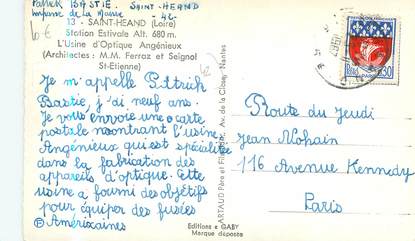 Patrick BASTIE. SAINT-HEAND
Impasse de la Mairie 42-
10 €
13 - SAINT-HEAND (Loire)
Station Estivale Alt. 680 m.
L'Usine d'Optique Angénieux
(Architectes : M.M. Ferraz et Seignol
St-Etienne)
Je m'appelle Patrick
Bastie, j'ai neuf ans.
Je vous envoie une carte
postale montrant l'usine
Angénieux qui est spécialisée
dans la fabrication des
appareils d'optique. Cette
usine a fourni des objetifs
pour équiper des fusées
Américaines
Editions « GABY
Marque déposée
ARTAUD Père et Fils, Av. de la Close, Nantes
PARIS 0,30
Route du Jeudi
Jean Nohain
116 Avenue Kennedy
Paris